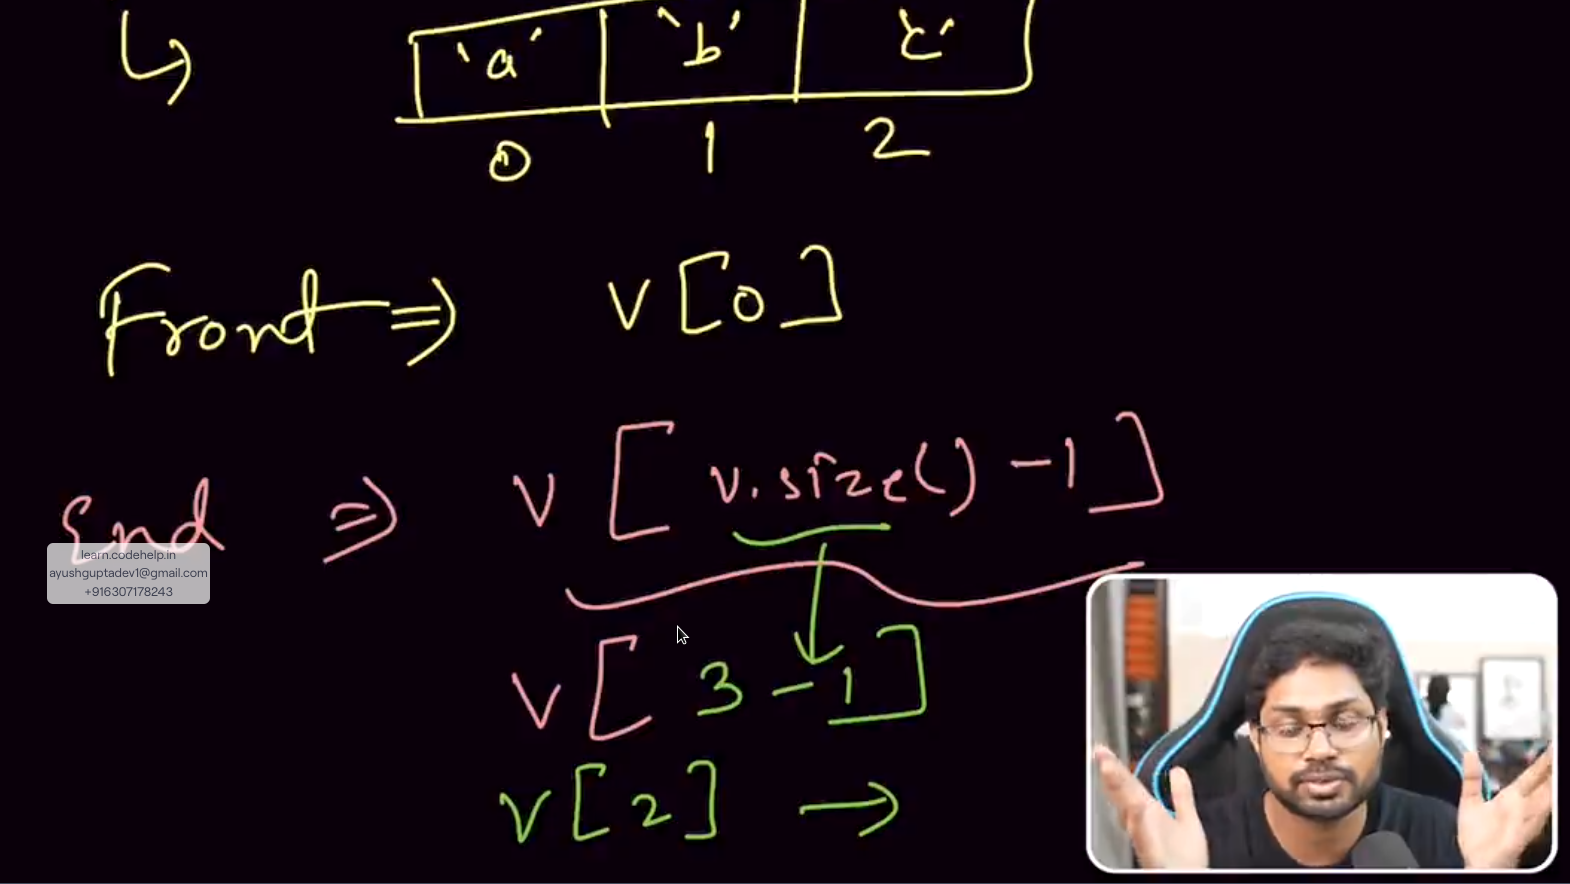 'a' 'b' 'c'
0 1 2
Front ⇒ v[0]
End ⇒ v[v.size()-1]
learn.codehelp.in
ayushguptadev1@gmail.com
+916307178243
v[3-1]
v[2] →